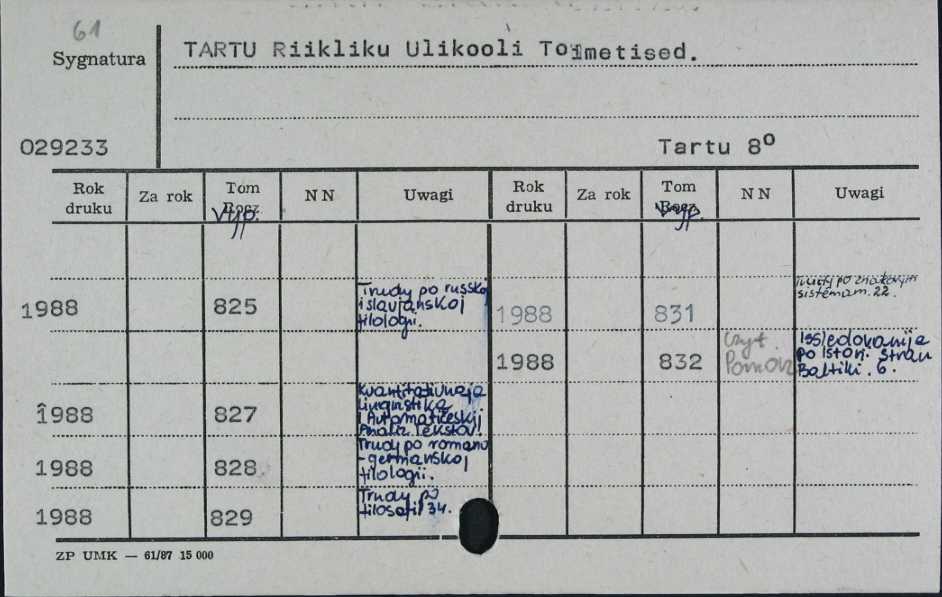 61
Sygnatura
TARTU Riikliku Ulikooli Toimetised.
029233
Tartu 8º
Rok druku Za rok Tom Rocz. N N Uwagi Rok druku Za rok Tom Rocz. N N Uwagi
Vyp. Vyp.
1988 825 Trudy po russkoj
i slavjanskoj
filologii.
1988 831 Trudy po znakovym
sistemam. 22.
1988 832 Czyt.
Pomorz
Issledovanija
po istor. stran
Baltiki. 6.
1988 827 Kvantitativnaja
lingvistika
i Avtomatičeskij
Analiz Tekstov.
1988 828 Trudy po romano
-germanskoj
filologii.
1988 829 Trudy po
filosofii 34.
ZP UMK — 61/87 15 000